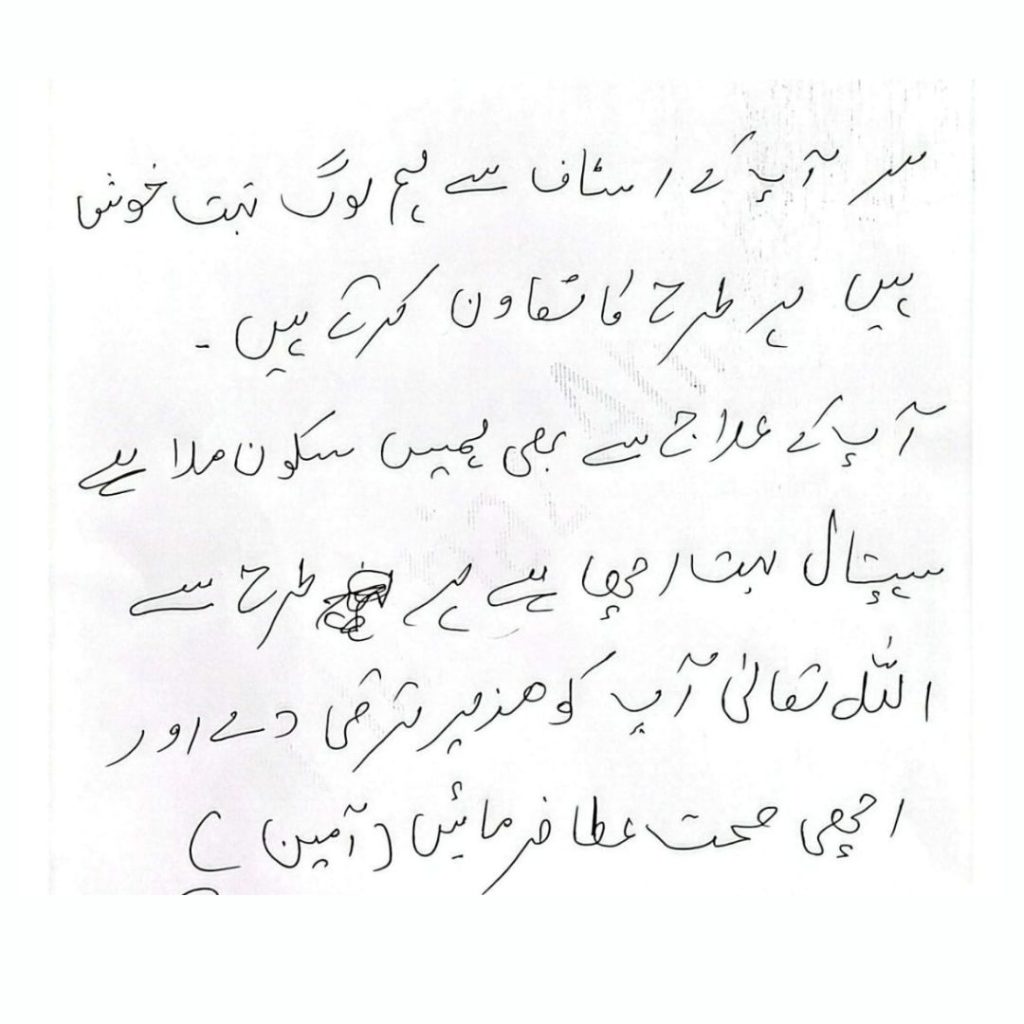 سر آپ کے اسٹاف سے ہم لوگ بہت خوش
ہیں ہر طرح کا تعاون کرتے ہیں ۔
آپ کے علاج سے بھی ہمیں سکون ملا ہے
ہسپتال بہت اچھا ہے ہر طرح سے
اللہ تعالیٰ آپ کو مزید ترقی دے اور
اچھی صحت عطا فرمائیں (آمین)